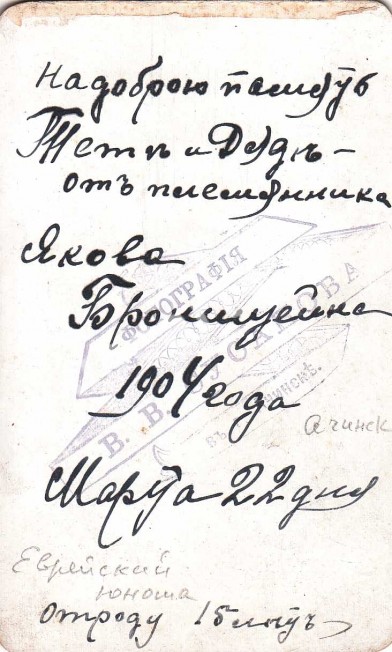 На доброю память
Тети и Дядѣ -
отъ племянника
Якова
Бронштейна
1904 года
Ачинск
Марта 22 дня
Еврейский
юноша
отроду 15 летъ
ФОТОГРАФІЯ
В. В.
въ Ачинскѣ.